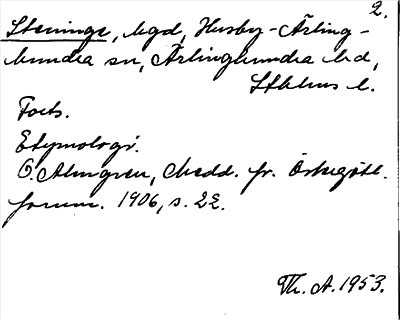 2.
Steninge, bgd, Husby-Ärling-
hundra sn, Ärlinghundra hd,
Sthlms l.
Forts.
Etymologi.
O. Almgren, Medd. fr. Östergötl.
fornm. 1906, s. 22.
Th. A. 1953.